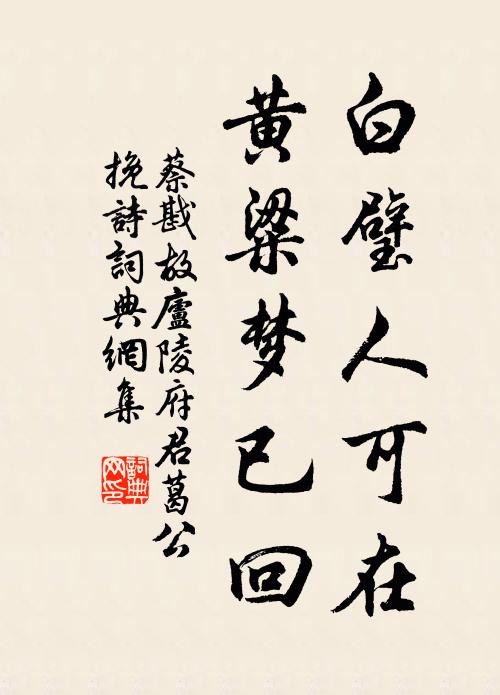 白璧人可在
黄粱梦已回
蔡戡故廬陵府君葛公
挽詩詞典網集
詞典
网印